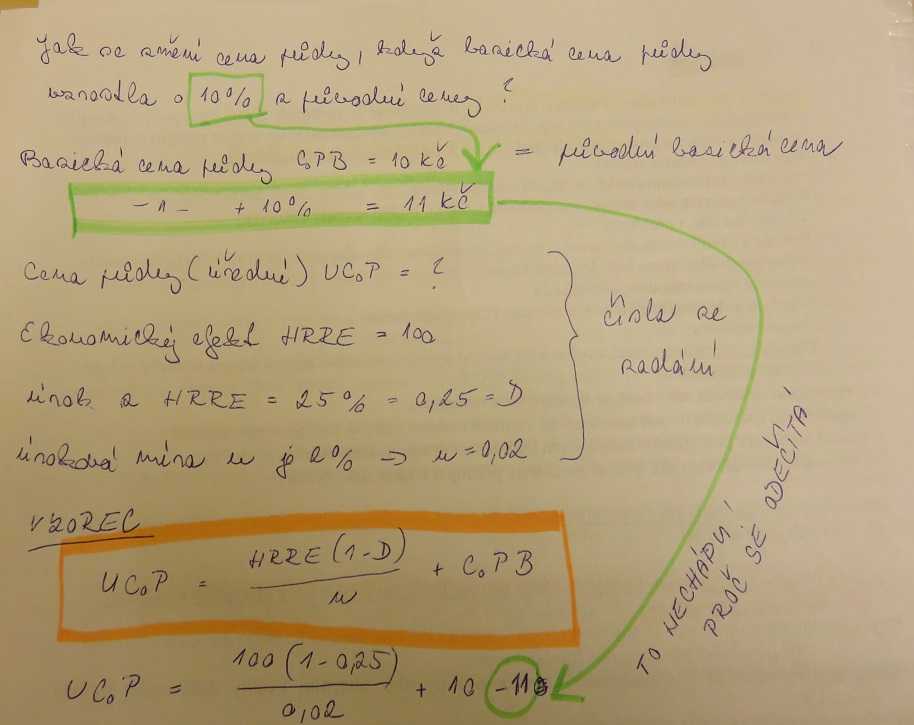 Jak se změní cena půdy, když bazická cena půdy
vzrostla o 10% z původní ceny ?
Bazická cena půdy CPB = 10 kč = původní bazická cena
-"- + 10% = 11 kč
Cena půdy (úřední) UCoP = ?
Ekonomický efekt HRRE = 100
úrok z HRRE = 25% = 0,25 = D
úroková míra u je 2% → u = 0,02
čísla ze
zadání
VZOREC
UCoP = HRRE (1-D) / u + CoPB
UCoP = 100 (1-0,25) / 0,02 + 10 -11
TO NECHÁPU!
PROČ SE ODEČÍTÁ